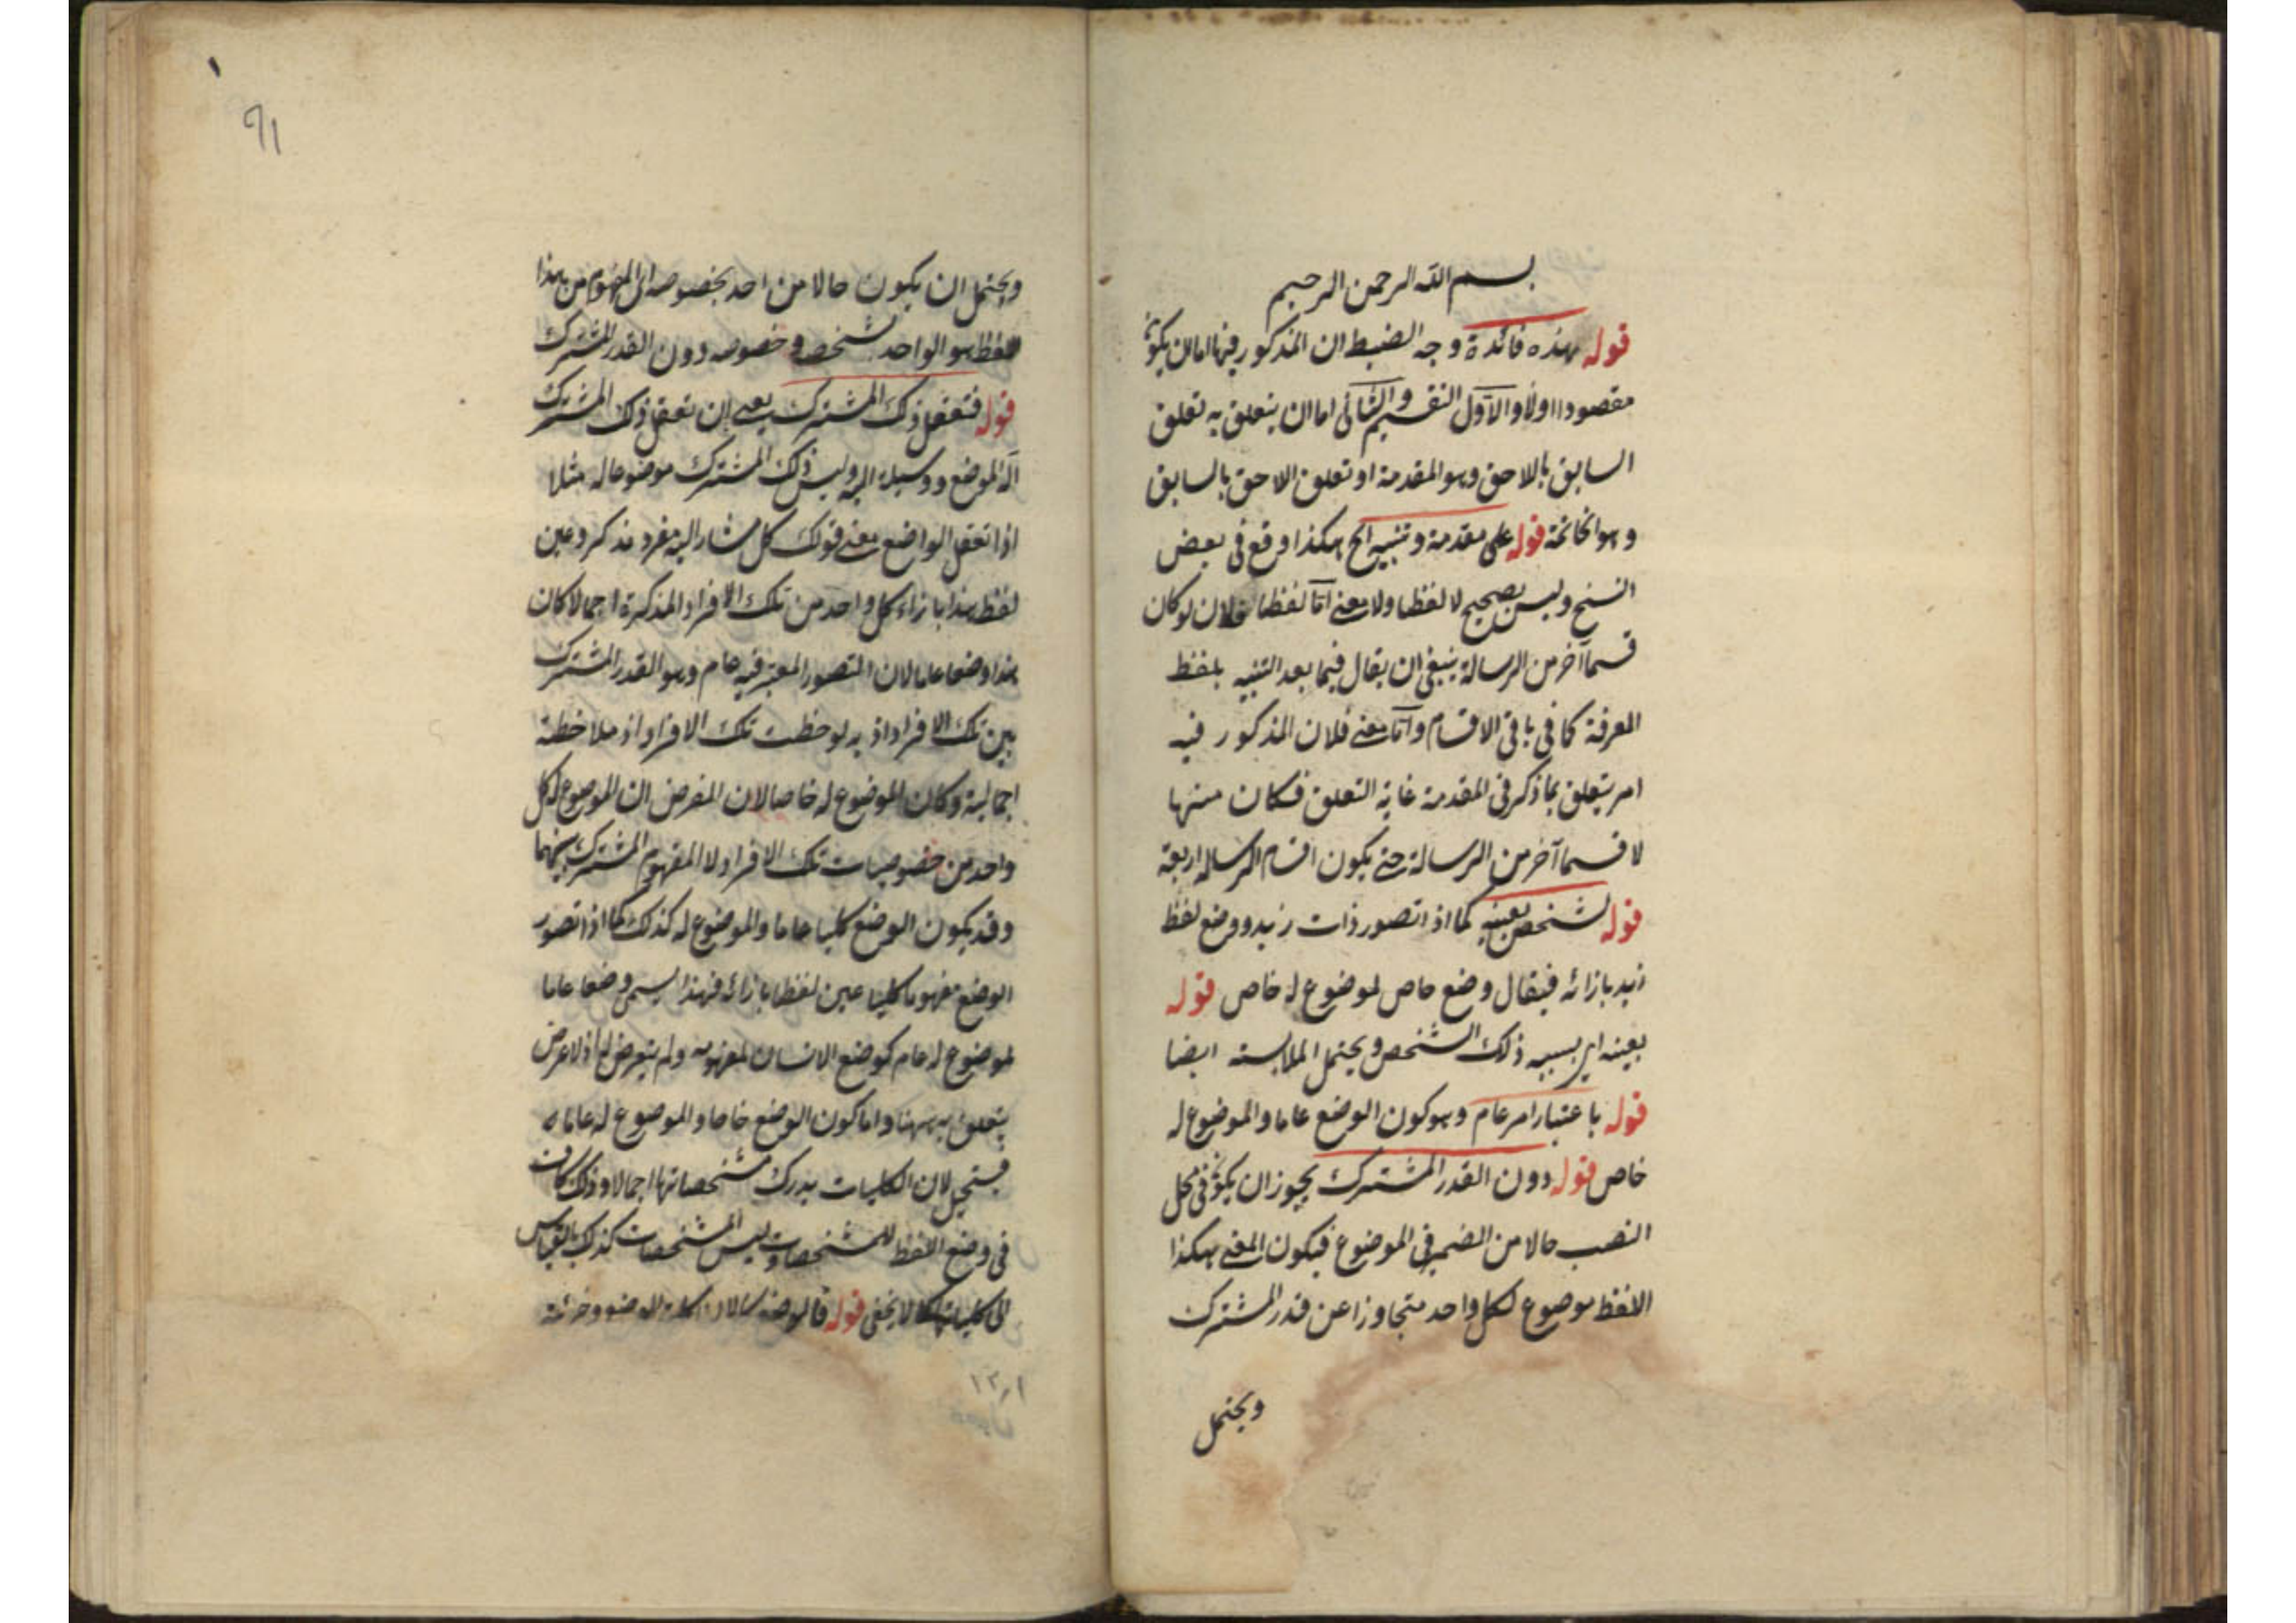 بسم الله الرحمن الرحيم
قوله هذه فائدة وجه الضبط ان المذكور فيها اما ان يكون
مقصودا اولا والاول التقسيم والثاني اما ان يتعلق به تعلق
السابق بالاحق وهو المقدمة او تعلق الاحق بالسابق
وهو الخاتمة قوله على مقدمة وتنبيه الخ هكذا وقع في بعض
النسخ وليس بصحيح لا لفظا ولا معنى اما لفظا فلان لو كان
قسما آخر من الرسالة ينبغي ان يقال فيما بعد التنبيه بلفظ
المعرفة كما في باقي الاقسام واما معنى فلان المذكور فيه
امر يتعلق بما ذكر في المقدمة غاية التعلق فكان منها
لا قسما آخر من الرسالة حتى يكون اقسام الرسالة اربعة
قوله لشخص بعينه كما اذا تصور ذات زيد ووضع لفظ
زيد بازائه فيقال وضع خاص لموضوع له خاص قوله
بعينه اي بسببه ذلك الشخص ويحتمل الملابسته ايضا
قوله باعتبار امر عام وهو كون الوضع عاما والموضوع له
خاص قوله دون القدر المشترك يجوز ان يكون في محل
النصب حالا من الضمير في الموضوع فيكون المعنى هكذا
اللفظ موضوع لكل واحد متجاوزا عن قدر المشترك
ويحتمل
٩١
ويحتمل ان يكون حالا من احد بخصوصه اي المفهوم من هذا
اللفظ هو الواحد بشخصه وخصوصه دون القدر المشترك
قوله فتعقل ذلك المشترك يعني ان تعقل ذلك المشترك
آلة للوضع ووسيلة اليه وليس ذلك المشترك موضوعا له مثلا
اذا تعقل الواضع معنى قولك كل مشار اليه مفرد مذكر وعين
لفظ هذا بازاء كل واحد من تلك الافراد المذكرة اجمالا كان
هذا وضعا عاما لان التصور المعتبر فيه عام وهو القدر المشترك
بين تلك الافراد اذ به لوحظت تلك الافراد اذ ملاحظة
اجمالية وكان الموضوع له خاصا لان المفرض ان الموضوع له كل
واحد من خصوصيات تلك الافراد لا المفهوم المشترك بينهما
وقد يكون الوضع كليا عاما والموضوع له كذلك كما اذا تصور
الوضع مفهوما كليا عين لفظا بازائه فهذا يسمى وضعا عاما
لموضوع له عام كوضع الانسان لمفهومه ولم يتعرض له اذ لا غرض
يتعلق به ههنا واما كون الوضع خاصا والموضوع له عاما
فستحيل لان الكليات يدرك مشخصاتها اجمالا وذلك كان
في وضع اللفظ للمشخصات وليس المشخصات كذلك بالقياس
الى كلياتها كما لا يخفى قوله فالوضع